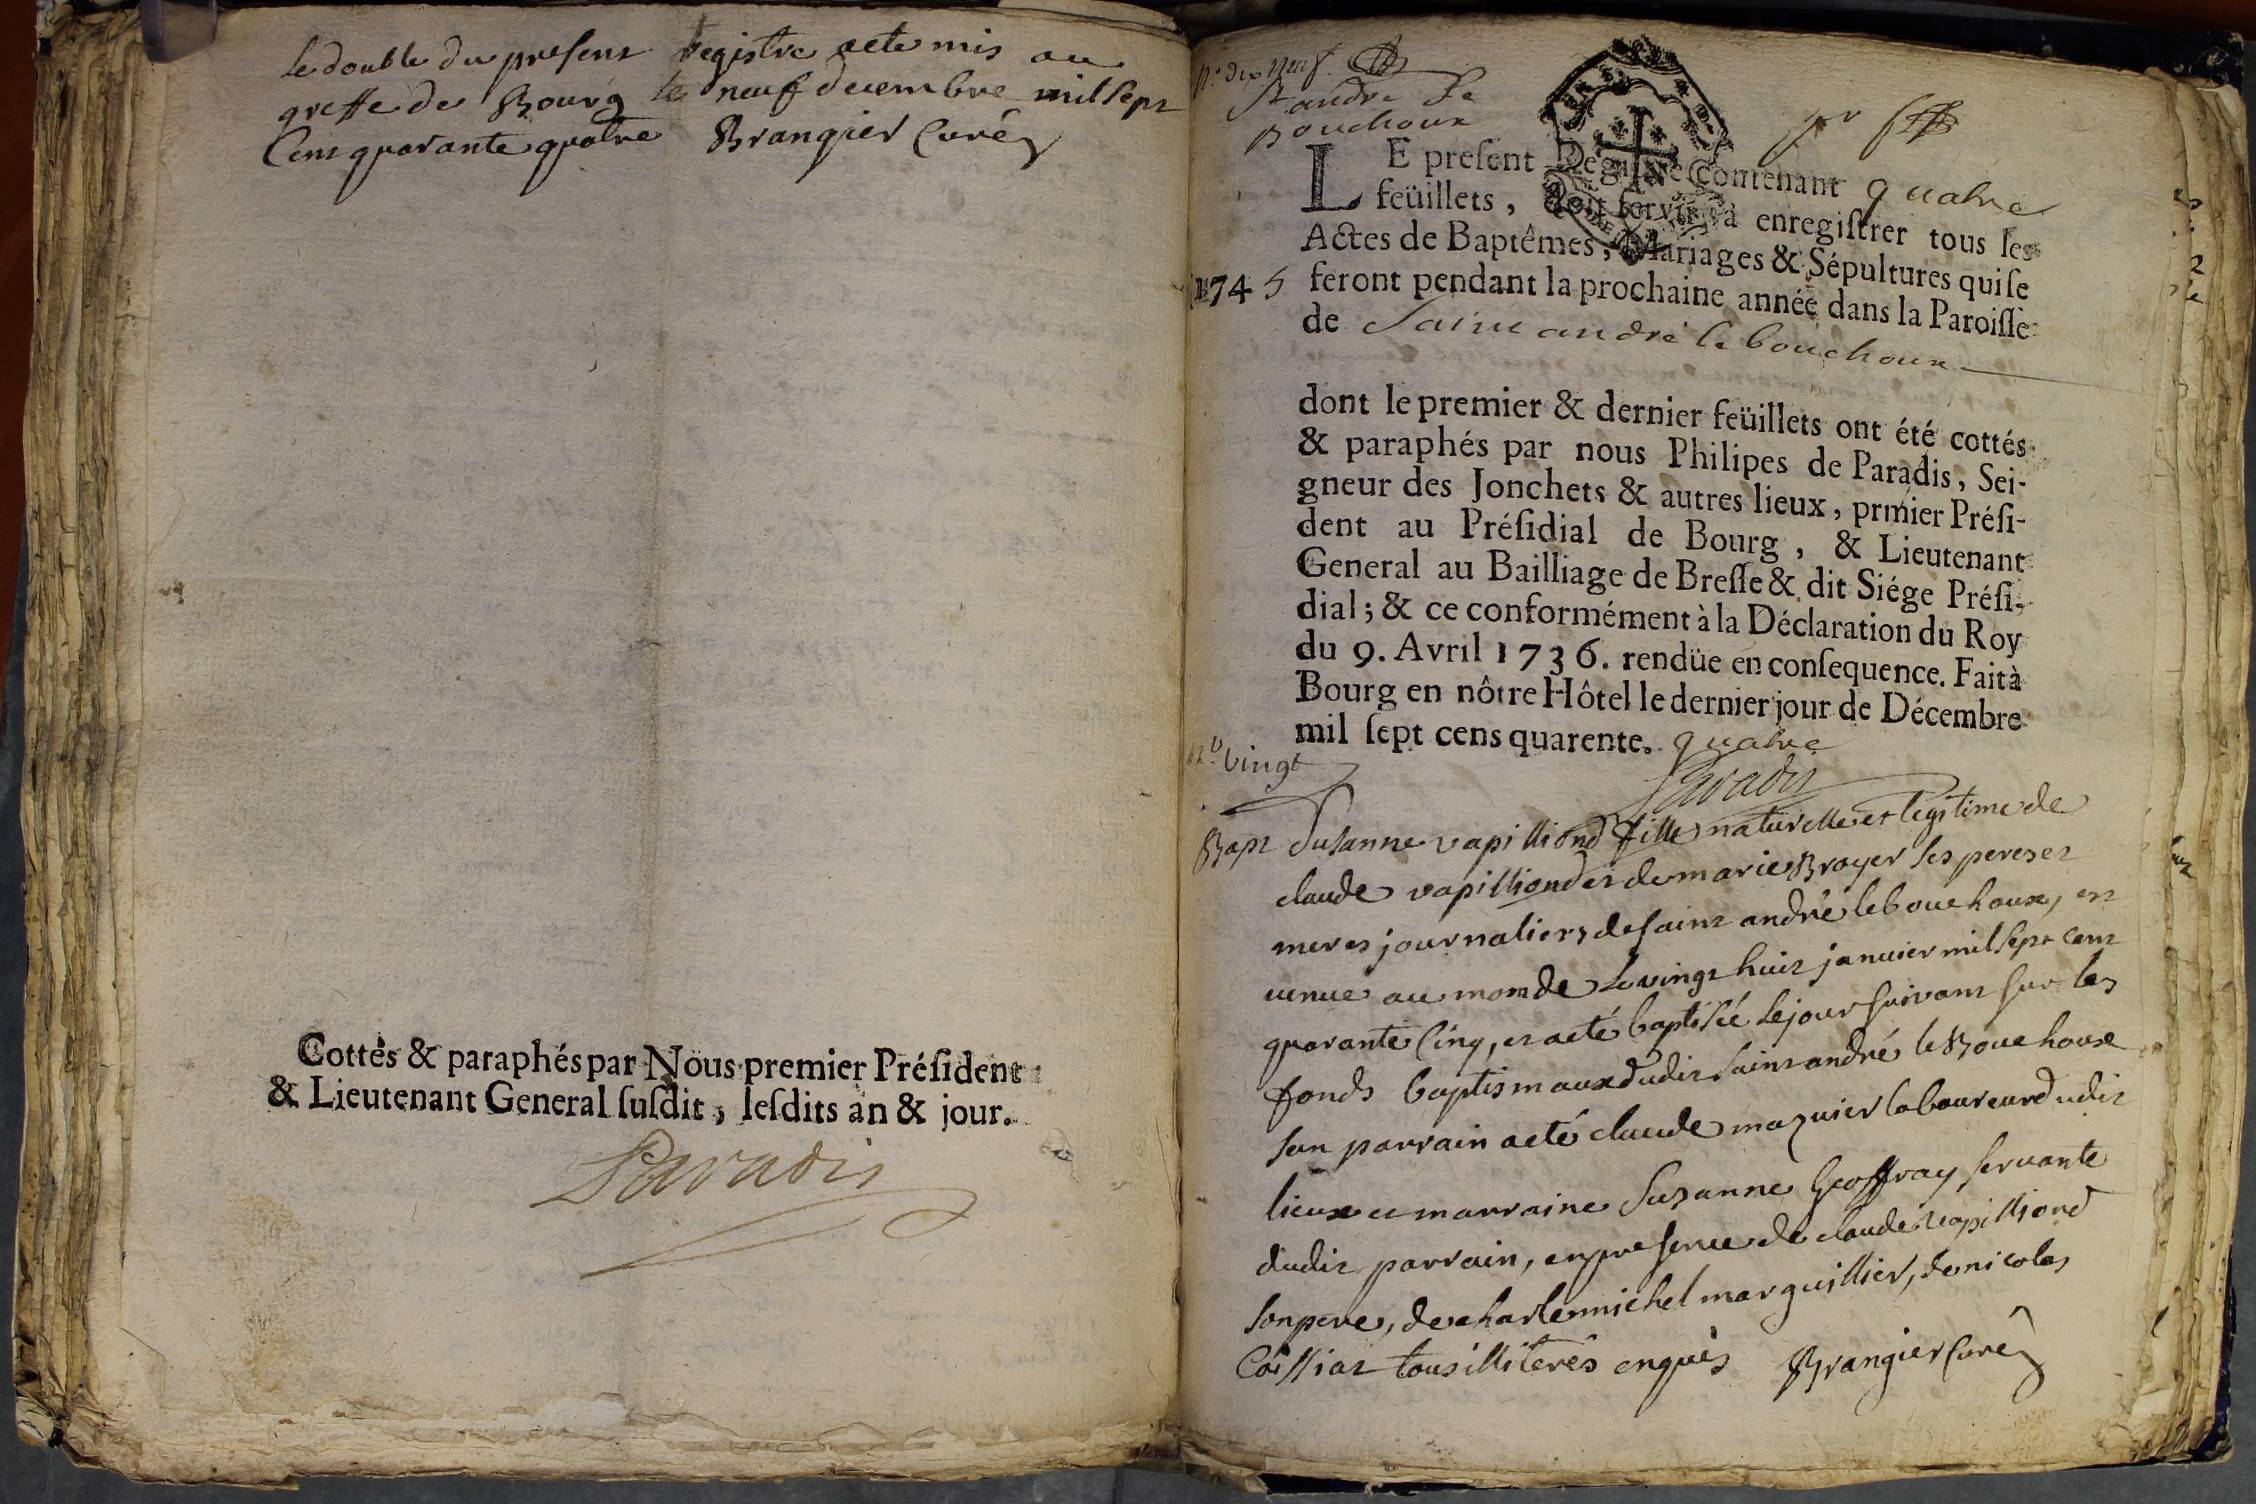 le double du present registre aeté mis au
greffe de Bourg le neuf decembre mil sept
Cent quarante quatre Brangier Curé
Cottés & paraphés par Nous premier Préſident
& Lieutenant General ſuſdit, leſdits an & jour.
Paradis
n.º dix neuf
St andre le
Bouchoux
LE preſent Regiſtre contenant quatre
feüillets, doit ſervir à enregiſtrer tous les
Actes de Baptêmes, Mariages & Sépultures qui ſe
1745 feront pendant la prochaine année dans la Paroiſſe
de Saint andré le bouchoux
dont le premier & dernier feüillets ont été cottés
& paraphés par nous Philipes de Paradis, Sei-
gneur des Jonchets & autres lieux, prmier Préſi-
dent au Préſidial de Bourg, & Lieutenant
General au Bailliage de Breſſe & dit Siége Préſi-
dial; & ce conformément à la Déclaration du Roy
du 9. Avril 1736. rendüe en conſequence. Fait à
Bourg en nôtre Hôtel le dernier jour de Décembre
mil ſept cens quarente. quatre
n.º vingt
Paradis
Bapt Susanne vapilliond fille naturelle et legitime de
claude vapilliond et de marie Broyer ses peres et
meres journaliers de saint andré le bouchoux, est
venue au monde le vingt huit janvier mil sept cent
quarante cinq, et aeté baptisée le jour suivant sur les
fonds baptismaux dudit saint andré le Bouchoux
son parrain aeté claude mazuier laboureur dudit
lieux et marraine Suzanne Geoffray servante
dudit parrain, en presence de claude vapilliond
son pere, de charle michel marguillier, de nicolas
Coilliat tous illiterés enquis Brangier Curé